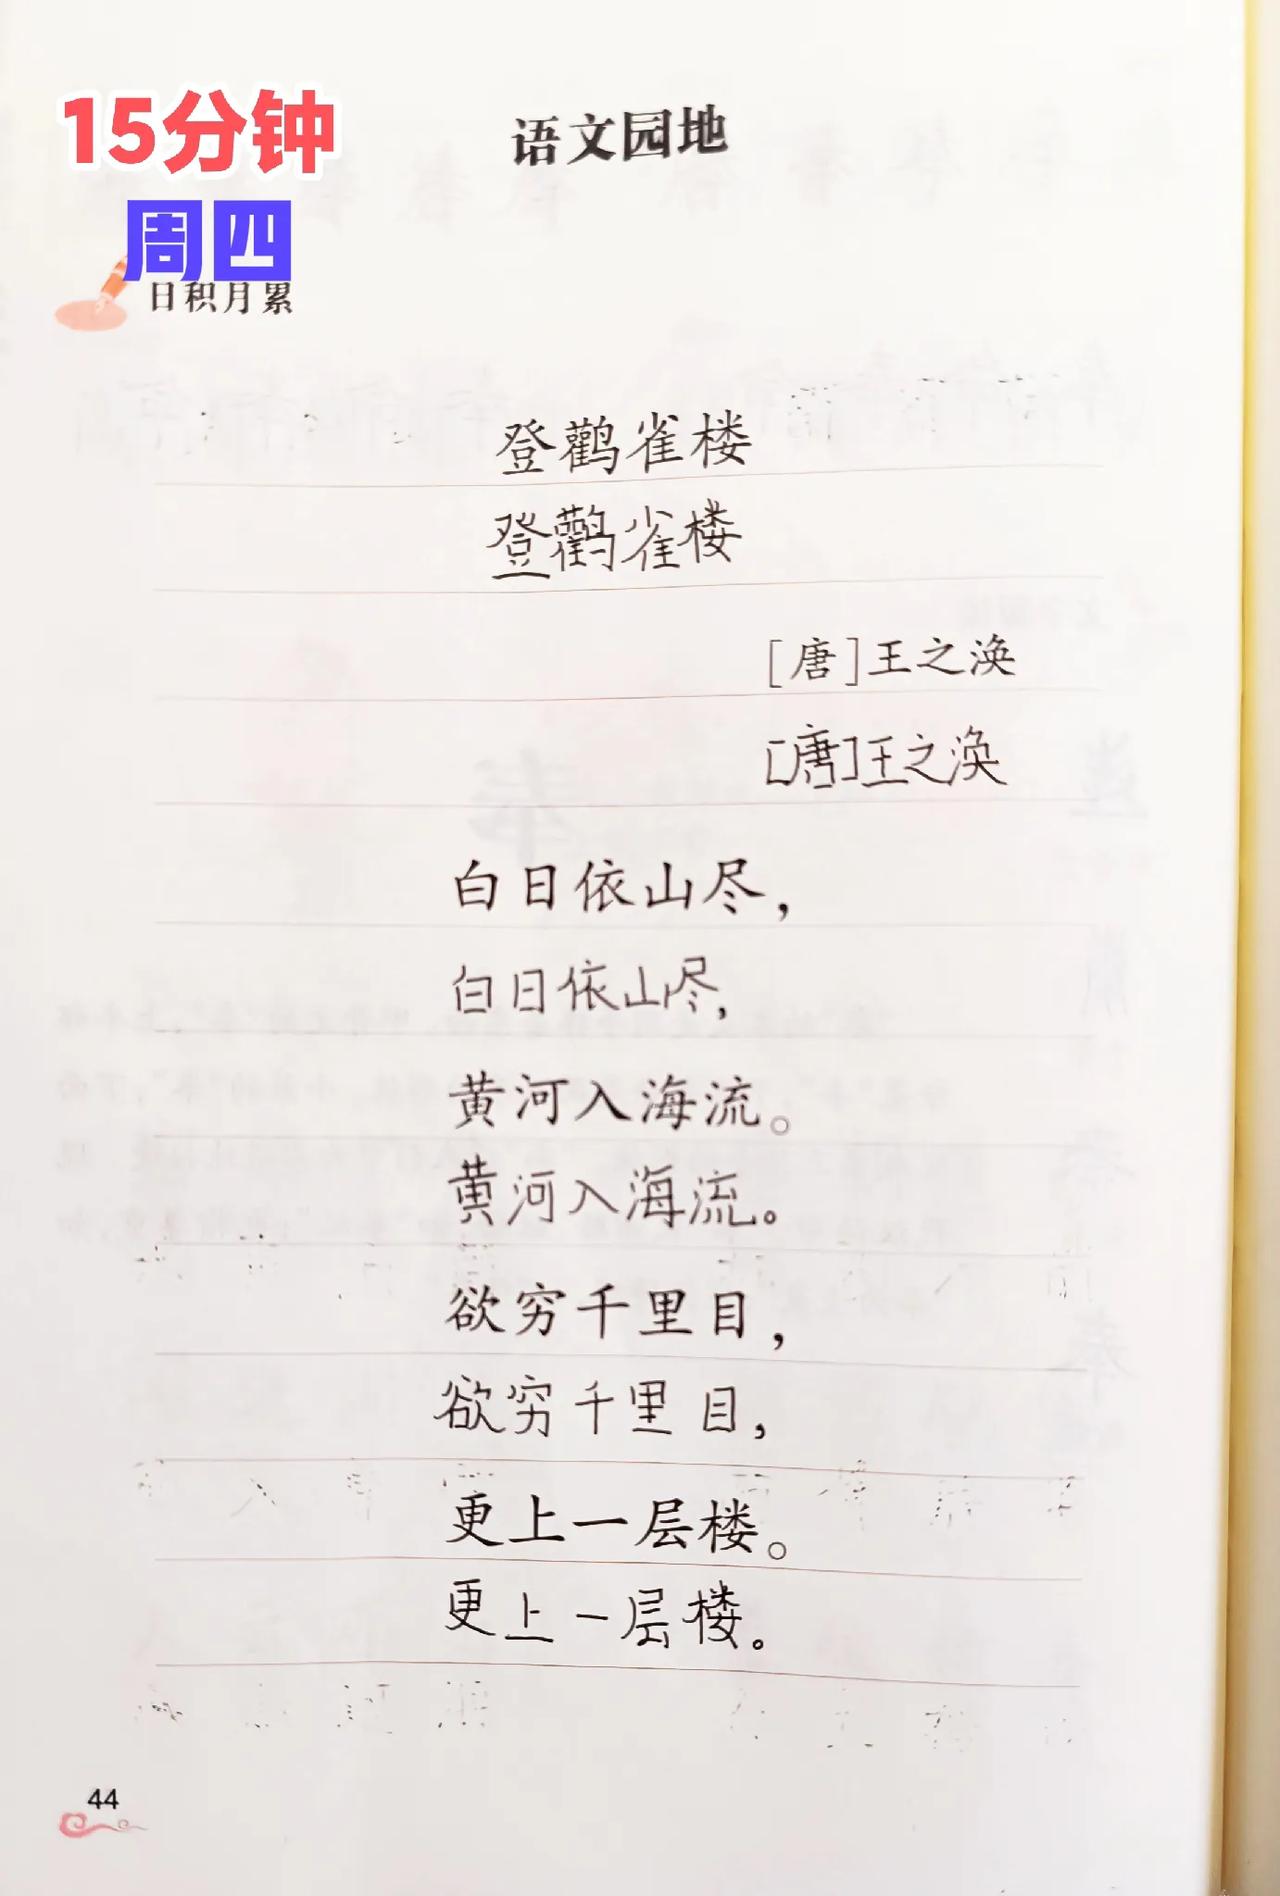 15分钟
语文园地
周四
日积月累
登鹳雀楼
登鹳雀楼
[唐]王之涣
[唐]王之涣
白日依山尽，
白日依山尽，
黄河入海流。
黄河入海流。
欲穷千里目，
欲穷千里目，
更上一层楼。
更上一层楼。
44